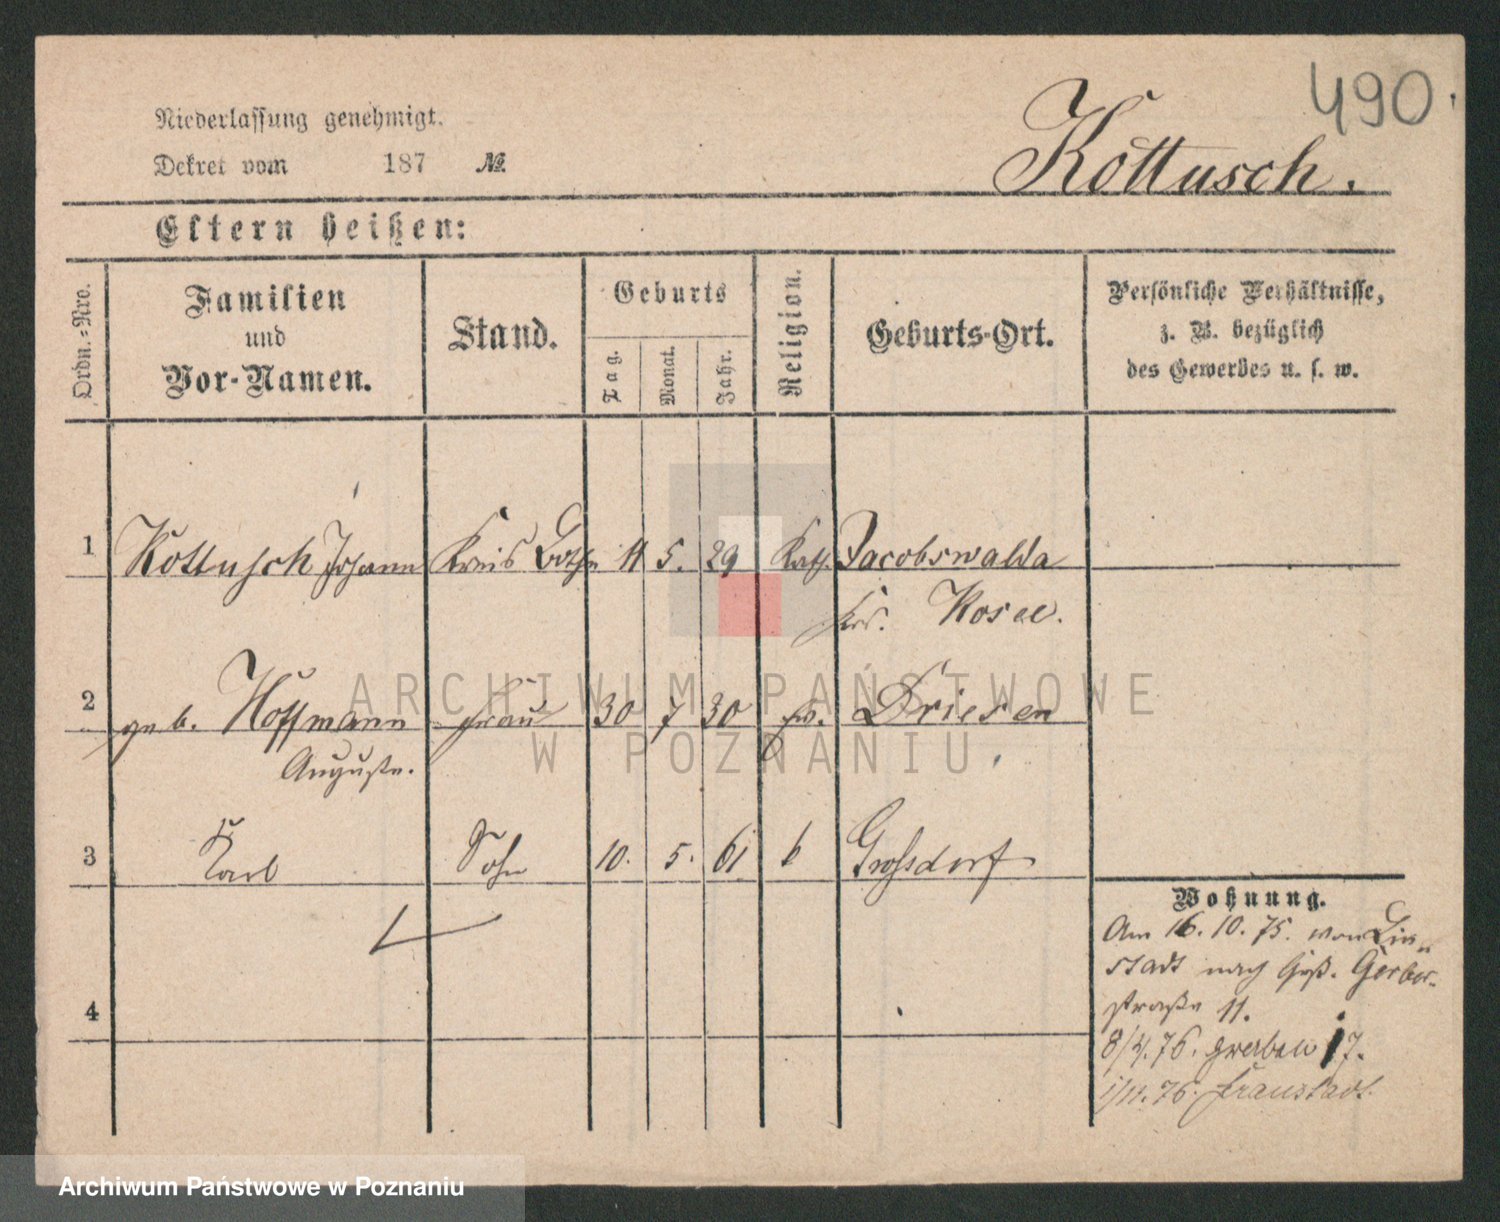 490.
Niederlassung genehmigt.
Dekret vom 187 №
Kottusch.
Eltern heißen:
Ordn.-Nro.
Familien
und
Vor-Namen.
Stand.
Geburts
Tag.
Monat.
Jahr.
Religion.
Geburts-Ort.
Persönliche Verhältnisse,
z. B. bezüglich
des Gewerbes u. s. w.
1 Kottusch Johann Kreis Bothe 11 5. 29 Kath. Jacobswalda
Krs. Kosel.
2 geb. Hoffmann Frau 30 7 30 Driesen
Auguste.
3 Karl Sohn 10. 5. 61 Grossdorf
4
Wohnung.
Am 16. 10. 75. von
stadt nach Gerber-
straße 11.
8/4. 76. 17.
1/11. 76. Fraustadt.
ARCHIWUM PAŃSTWOWE
W POZNANIU
Archiwum Państwowe w Poznaniu